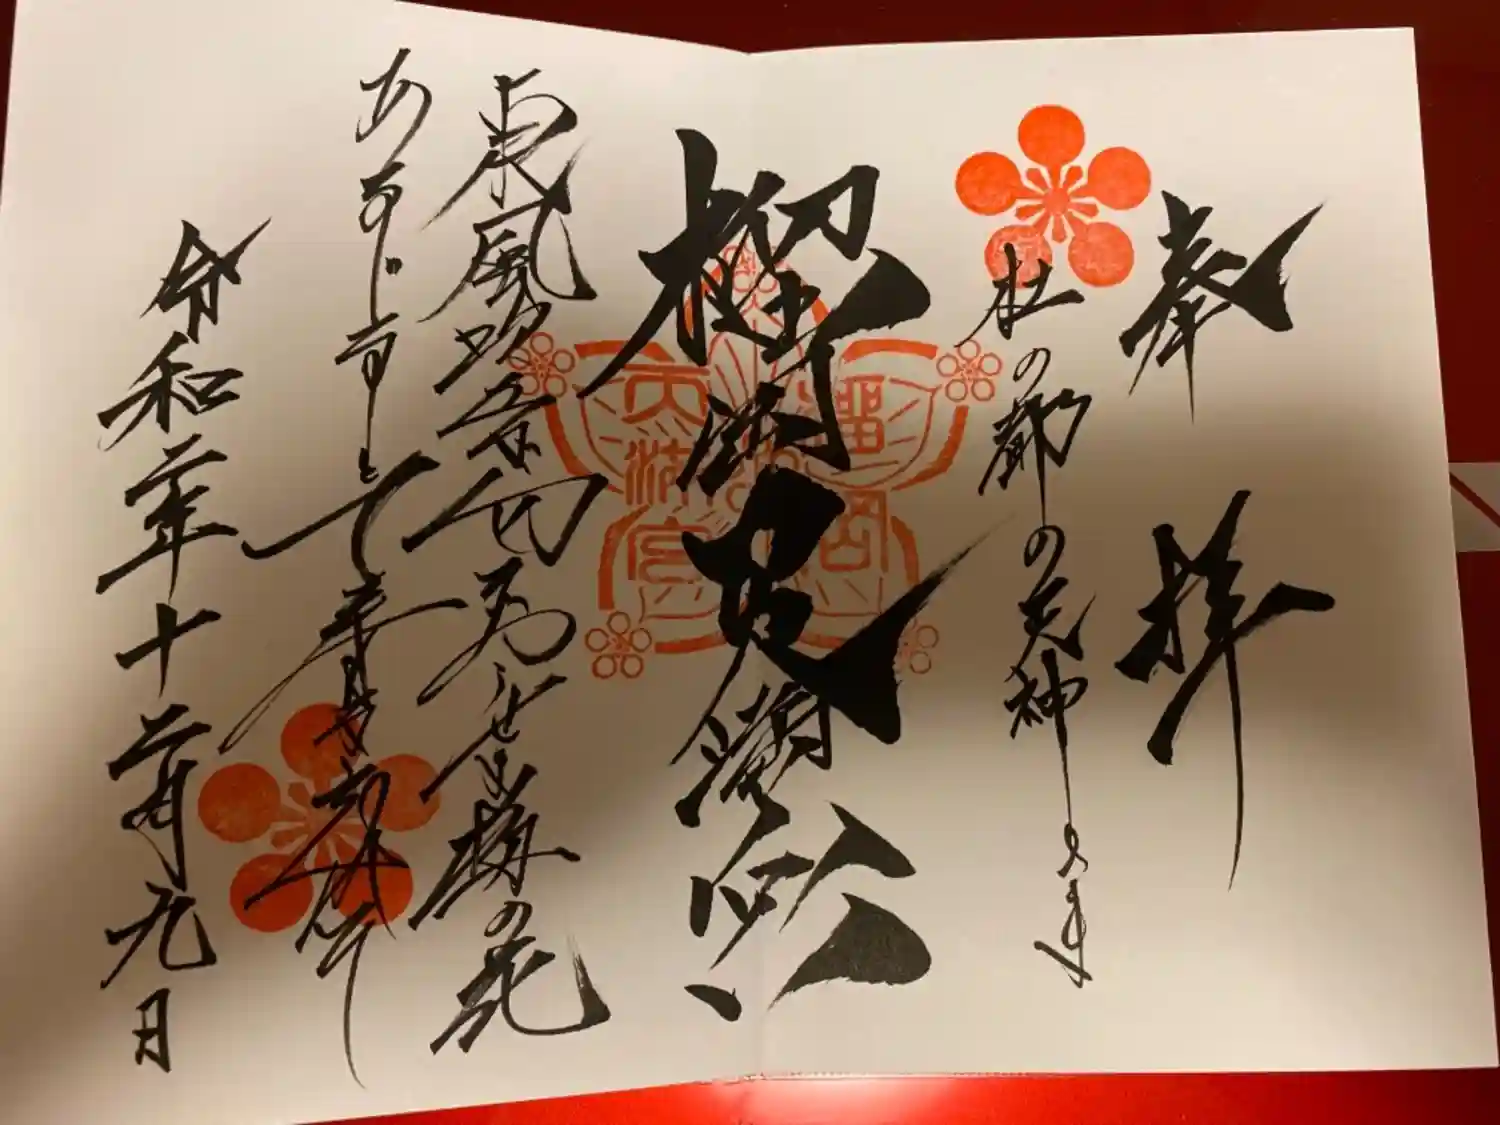 奉拝
杜の都の天神さま
榴岡天満宮
東風吹かば匂ひおこせよ梅の花
あるじなしとて春な忘れそ
令和二年十二月九日
榴岡
天満宮